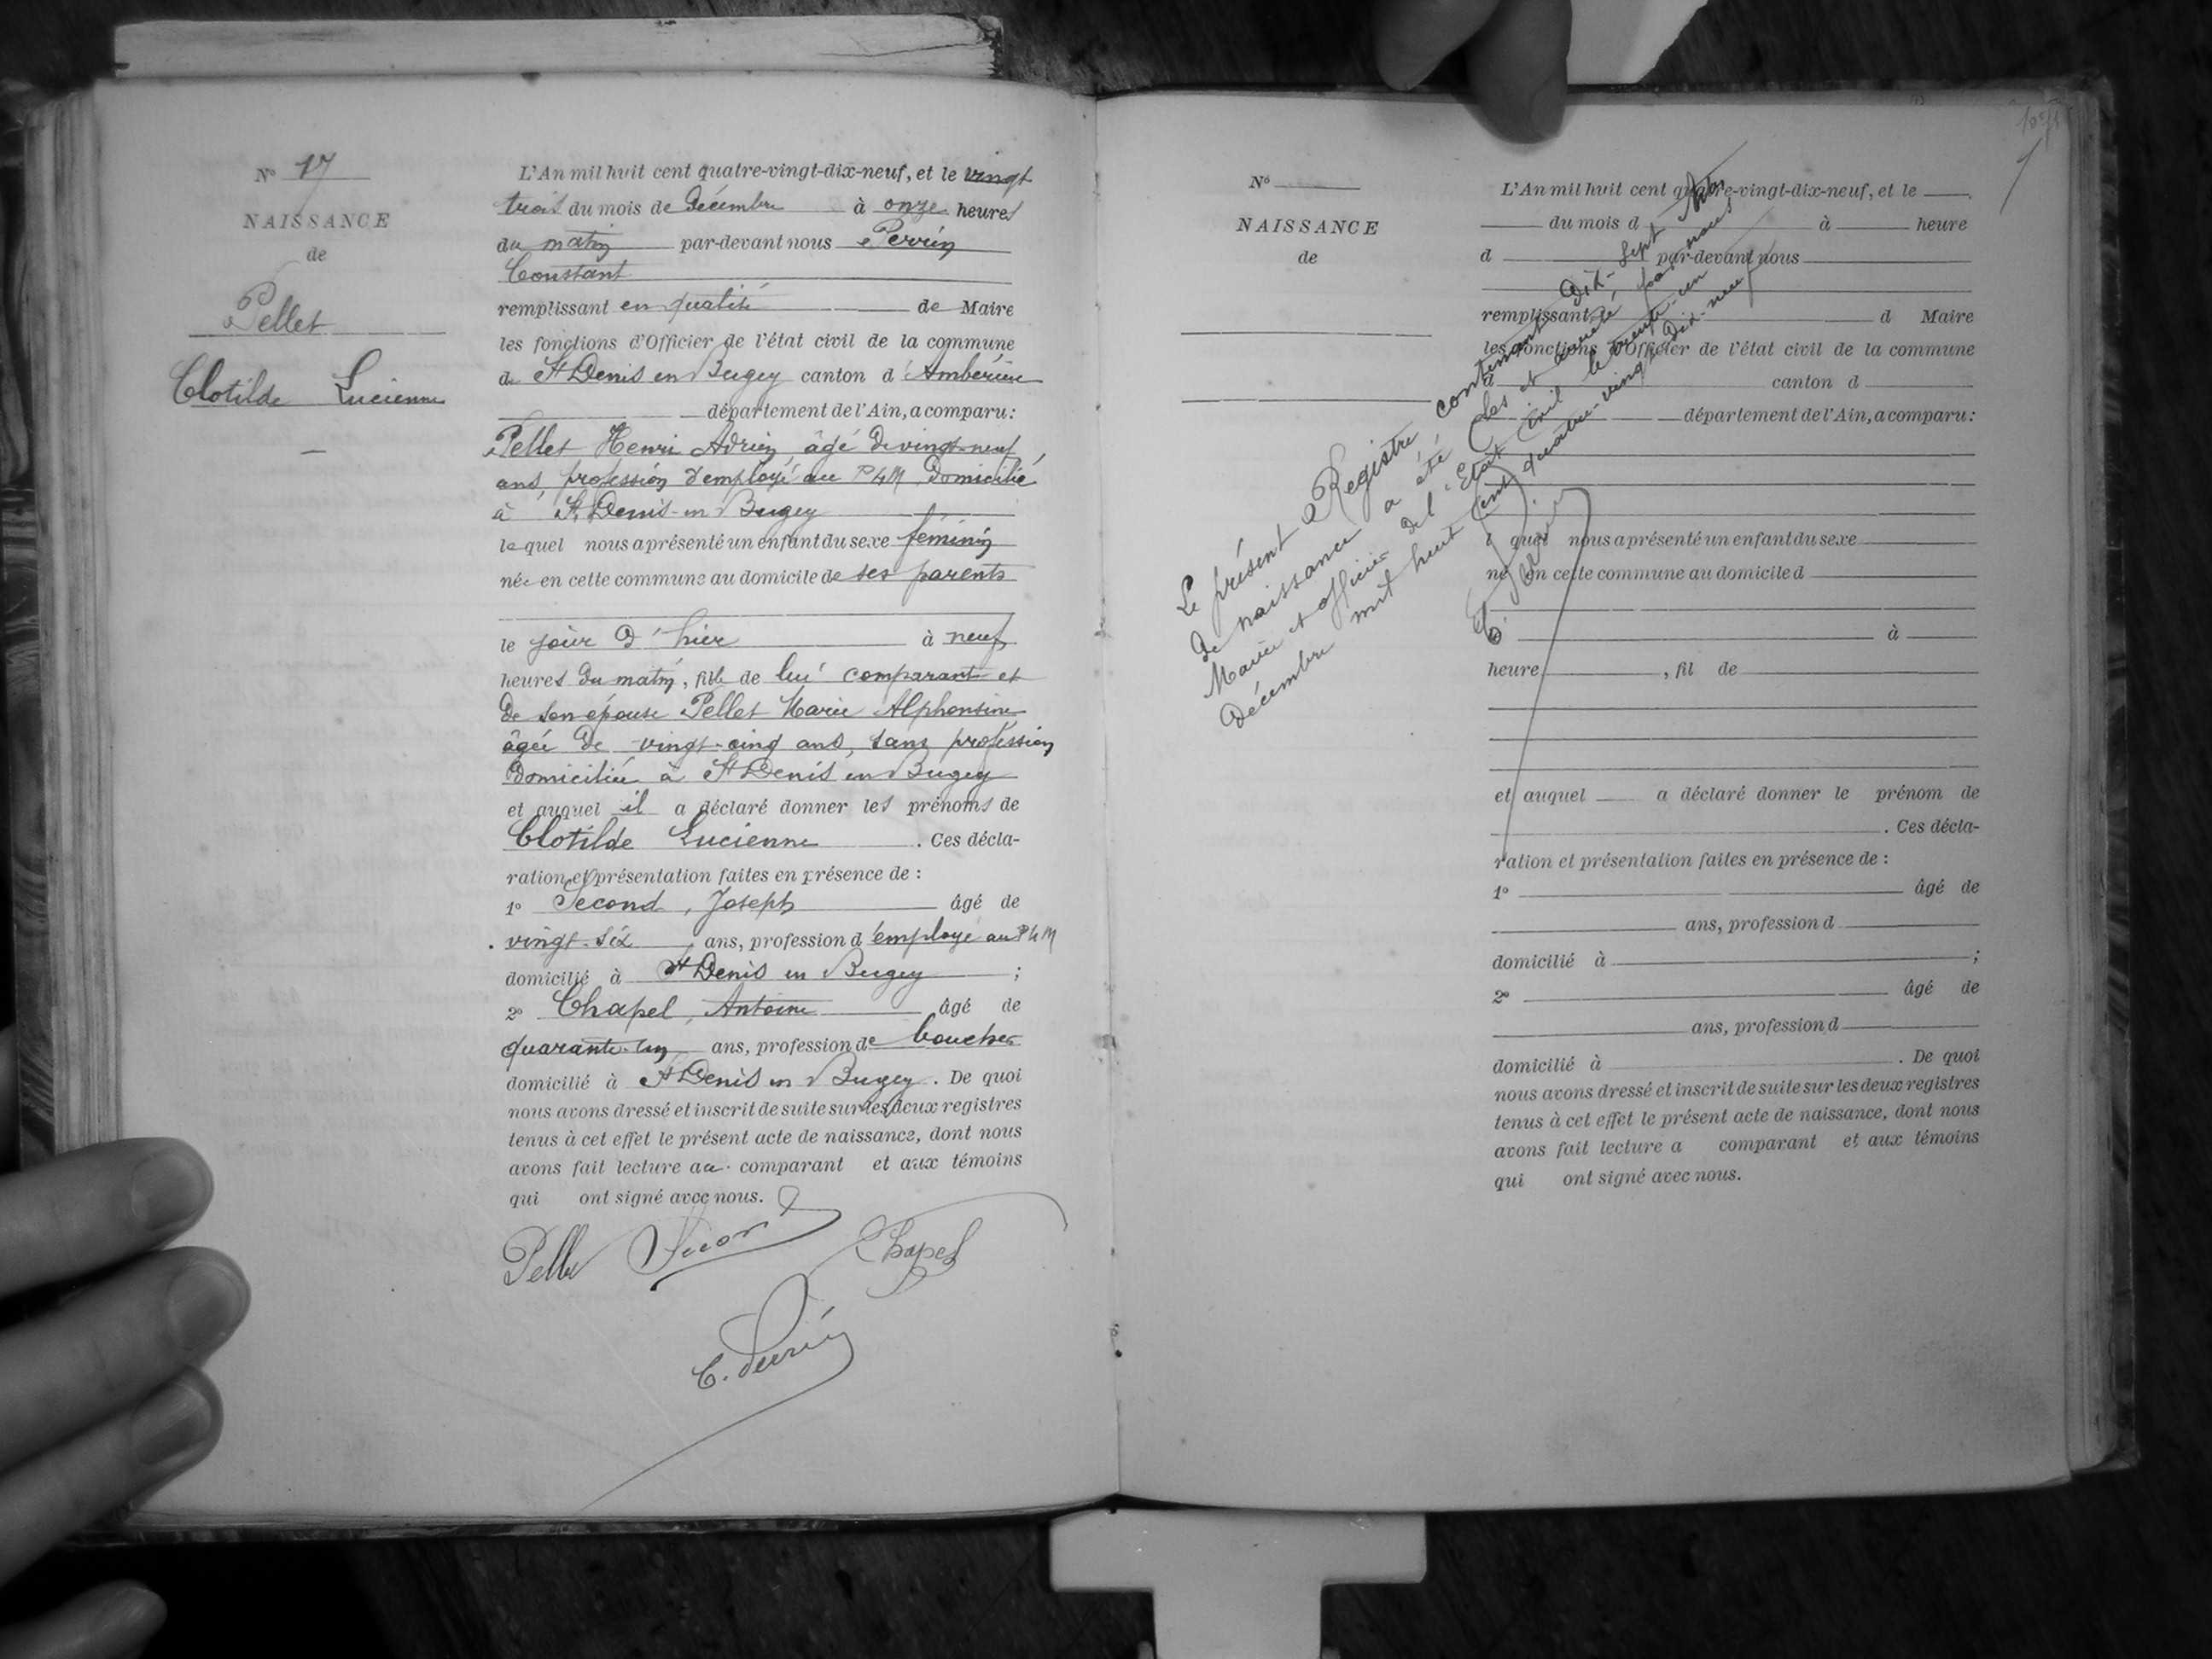 N° 17
NAISSANCE
de
Pellet
Clotilde Lucienne
L'An mil huit cent quatre-vingt-dix-neuf, et le vingt
trois du mois de Décembre à onze heures
du matin par-devant nous Perrin
Constant
remplissant en qualité de Maire
les fonctions d'Officier de l'état civil de la commune
de St Denis en Bugey canton d'Ambérieu
département de l'Ain, a comparu:
Pellet Henri Adrien, âgé de vingt-neuf
ans, profession d'employé au PLM domicilié
à St Denis-en Bugey
lequel nous a présenté un enfant du sexe féminin
née en cette commune au domicile de ses parents
le jour d'hier à neuf
heures du matin, fille de lui comparant et
de son épouse Pellet Marie Alphonsine
âgée de vingt-cinq ans, sans profession
domiciliée à St Denis en Bugey
et auquel il a déclaré donner les prénoms de
Clotilde Lucienne. Ces décla-
ration et présentation faites en présence de :
1° Second, Joseph âgé de
vingt-six ans, profession d'employé au PLM
domicilié à St Denis en Bugey ;
2° Chapel, Antoine âgé de
quarante-un ans, profession de boucher
domicilié à St Denis en Bugey. De quoi
nous avons dressé et inscrit de suite sur les deux registres
tenus à cet effet le présent acte de naissance, dont nous
avons fait lecture au comparant et aux témoins
qui ont signé avec nous.
Pellet Second Chapel
C. Perrin
N°
NAISSANCE
de
L'An mil huit cent quatre-vingt-dix-neuf, et le
du mois d à heure
d par-devant nous
remplissant d Maire
les fonctions d'Officier de l'état civil de la commune
d canton d
département de l'Ain, a comparu:
l quel nous a présenté un enfant du sexe
né en cette commune au domicile d
à
heure , fil de
et auquel a déclaré donner le prénom de
. Ces décla-
ration et présentation faites en présence de :
1° âgé de
ans, profession d
domicilié à ;
2° âgé de
ans, profession d
domicilié à . De quoi
nous avons dressé et inscrit de suite sur les deux registres
tenus à cet effet le présent acte de naissance, dont nous
avons fait lecture a comparant et aux témoins
qui ont signé avec nous.
Le présent Registre contenant Dix-sept
de naissance a été clos et arrêté par nous
Maire et officier de l'Etat Civil le trente-un
Décembre mil huit cent quatre-vingt-dix-neuf
C. Perrin